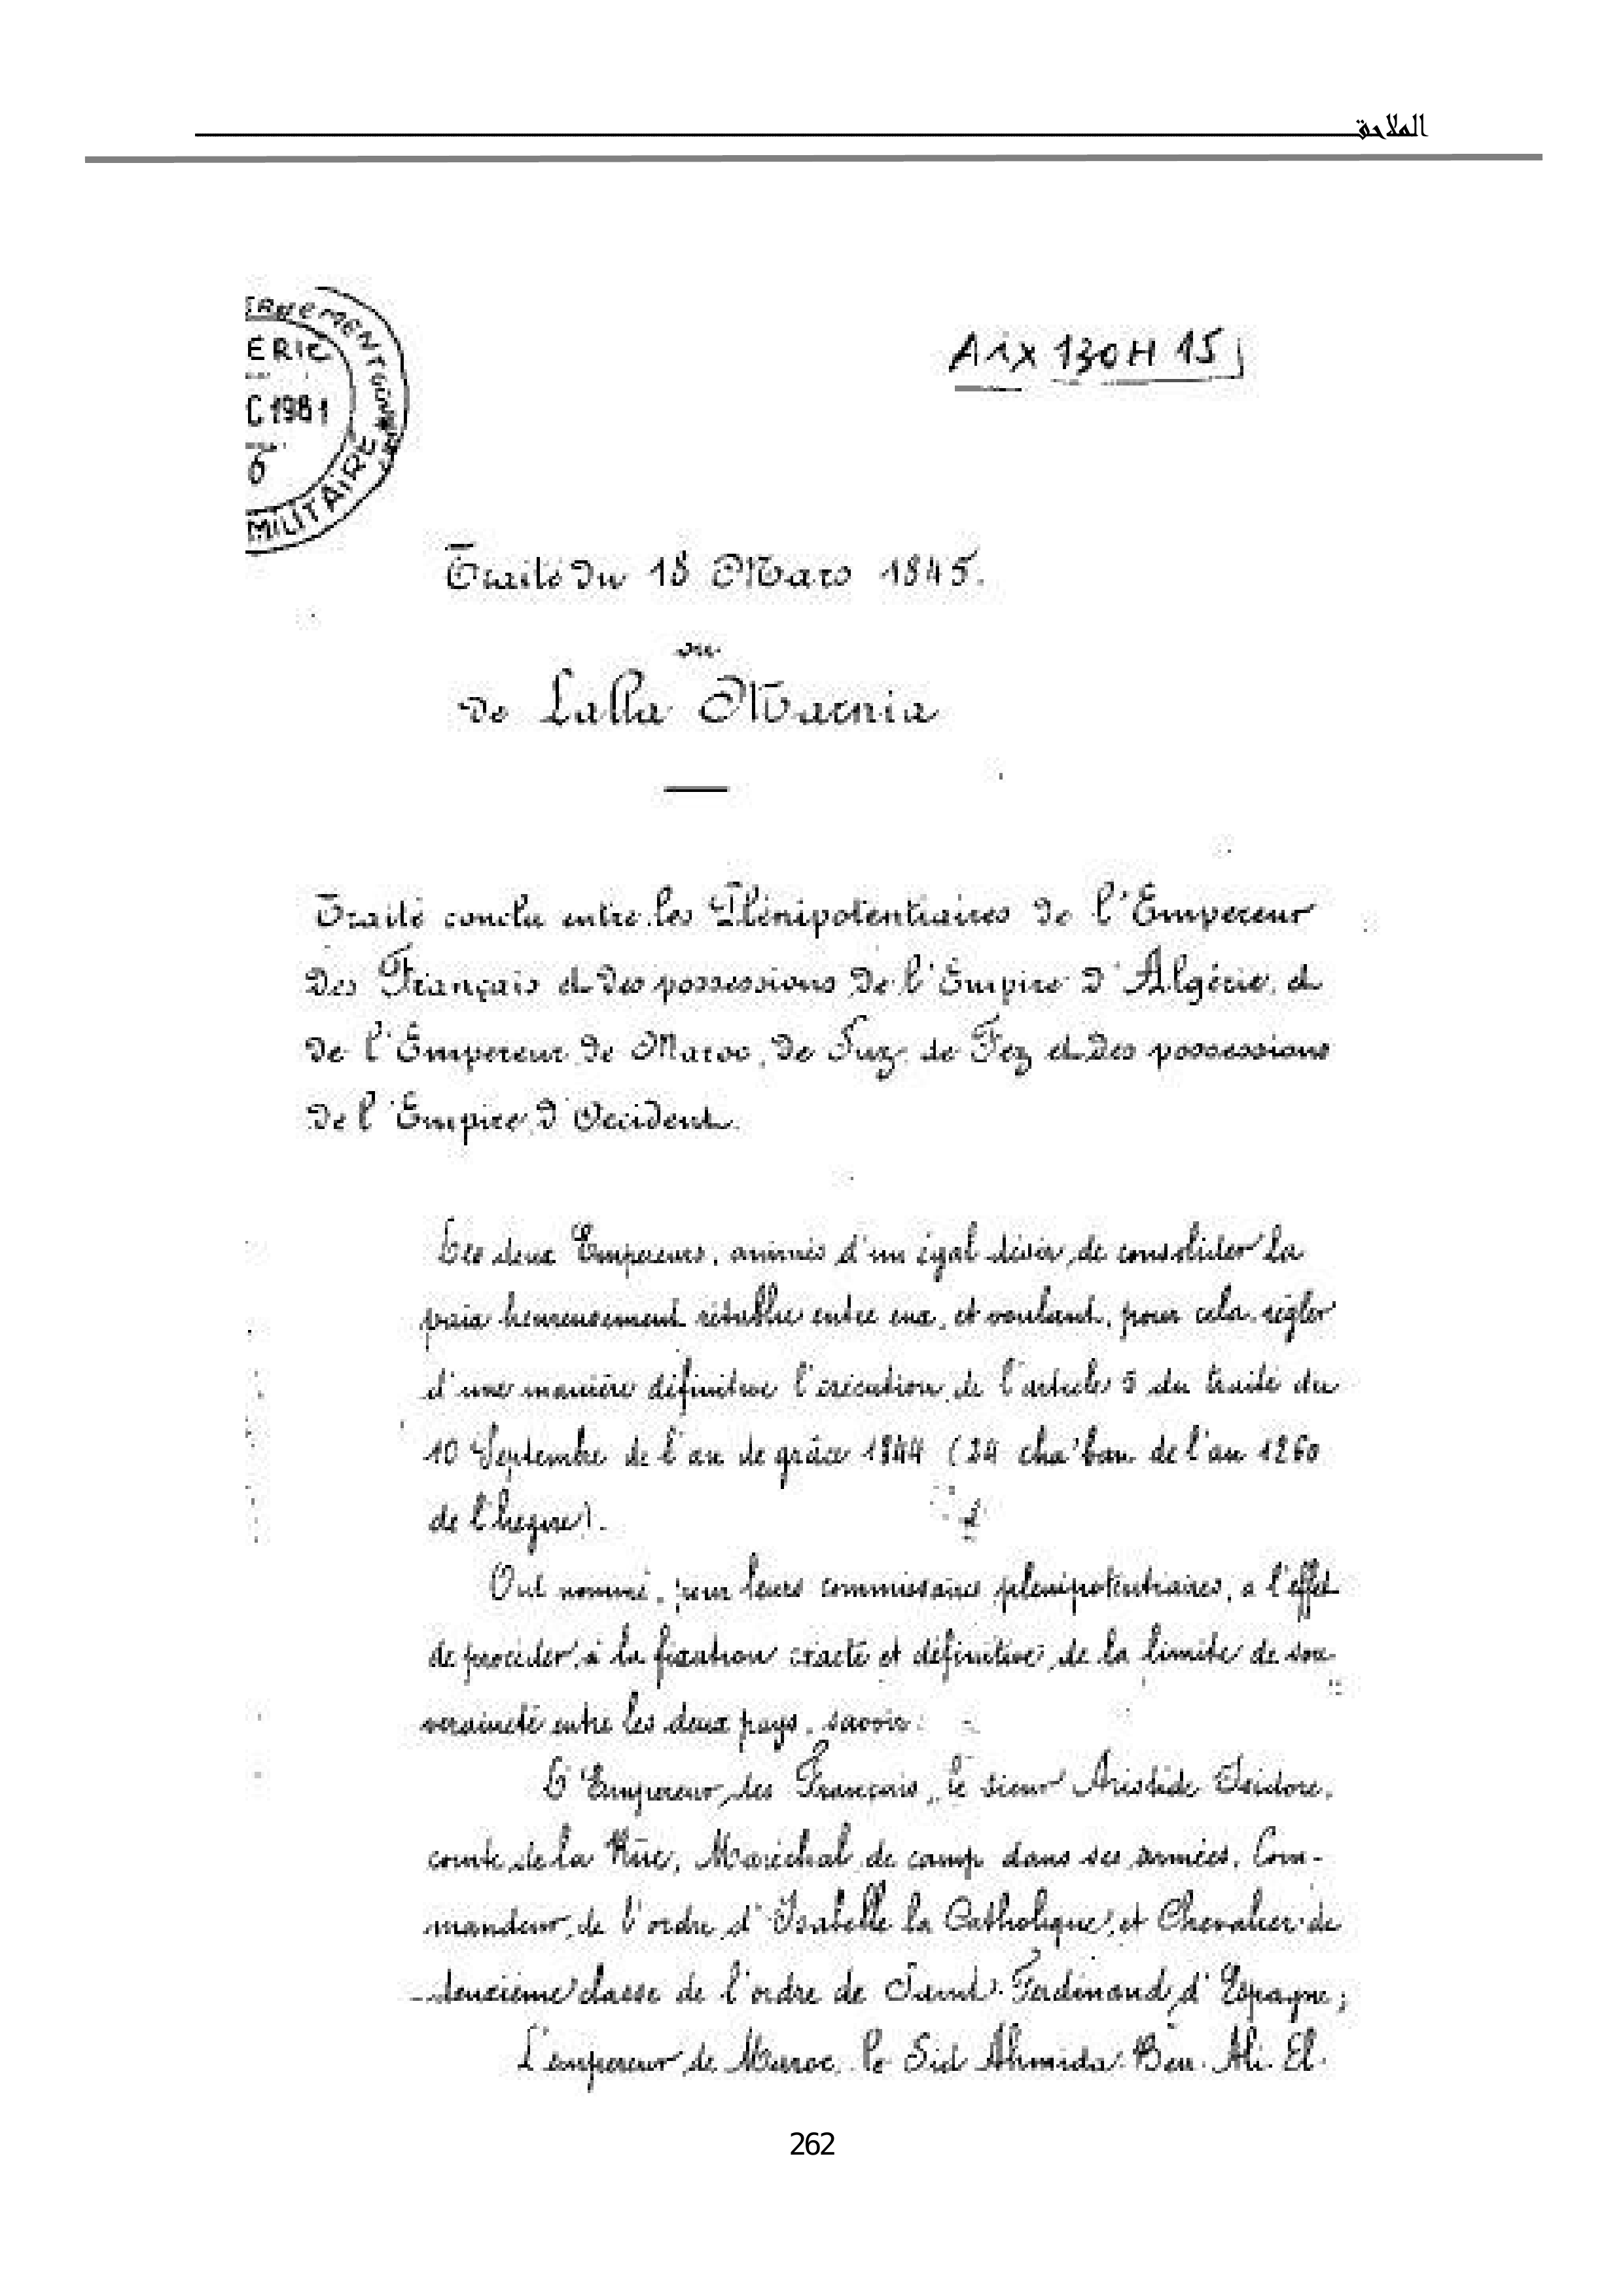 الملاحق
ERNEMENT GÉNÉRAL
ÉRIE
C 1981
MILITAIRE
Aix 130H 15
Traité du 18 Mars 1845.
ou
de Lalla Marnia
Traité conclu entre les Plénipotentiaires de l'Empereur
des Français et des possessions de l'Empire d'Algérie, et
de l'Empereur de Maroc, de Suz, de Fez et des possessions
de l'Empire d'Occident.
Les deux Empereurs, animés d'un égal désir de consolider la
paix heureusement rétablie entre eux, et voulant, pour cela, régler
d'une manière définitive l'exécution de l'article 5 du traité du
10 Septembre de l'an de grâce 1844 (24 cha'ban de l'an 1260
de l'hégire).
Ont nommé, pour leurs commissaires plenipotentiaires, a l'effet
de procéder à la fixation exacte et définitive de la limite de sou-
veraineté entre les deux pays, savoir:
L'Empereur des Français, le sieur Aristide Isidore,
comte de la Rüe, Maréchal de camp dans ses armées, Com-
mandeur de l'ordre d'Isabelle la Catholique, et Chevalier de
deuxième classe de l'ordre de Saint-Ferdinand d'Espagne;
L'empereur de Maroc, le Sid Ahmida-Ben-Ali-El-
262